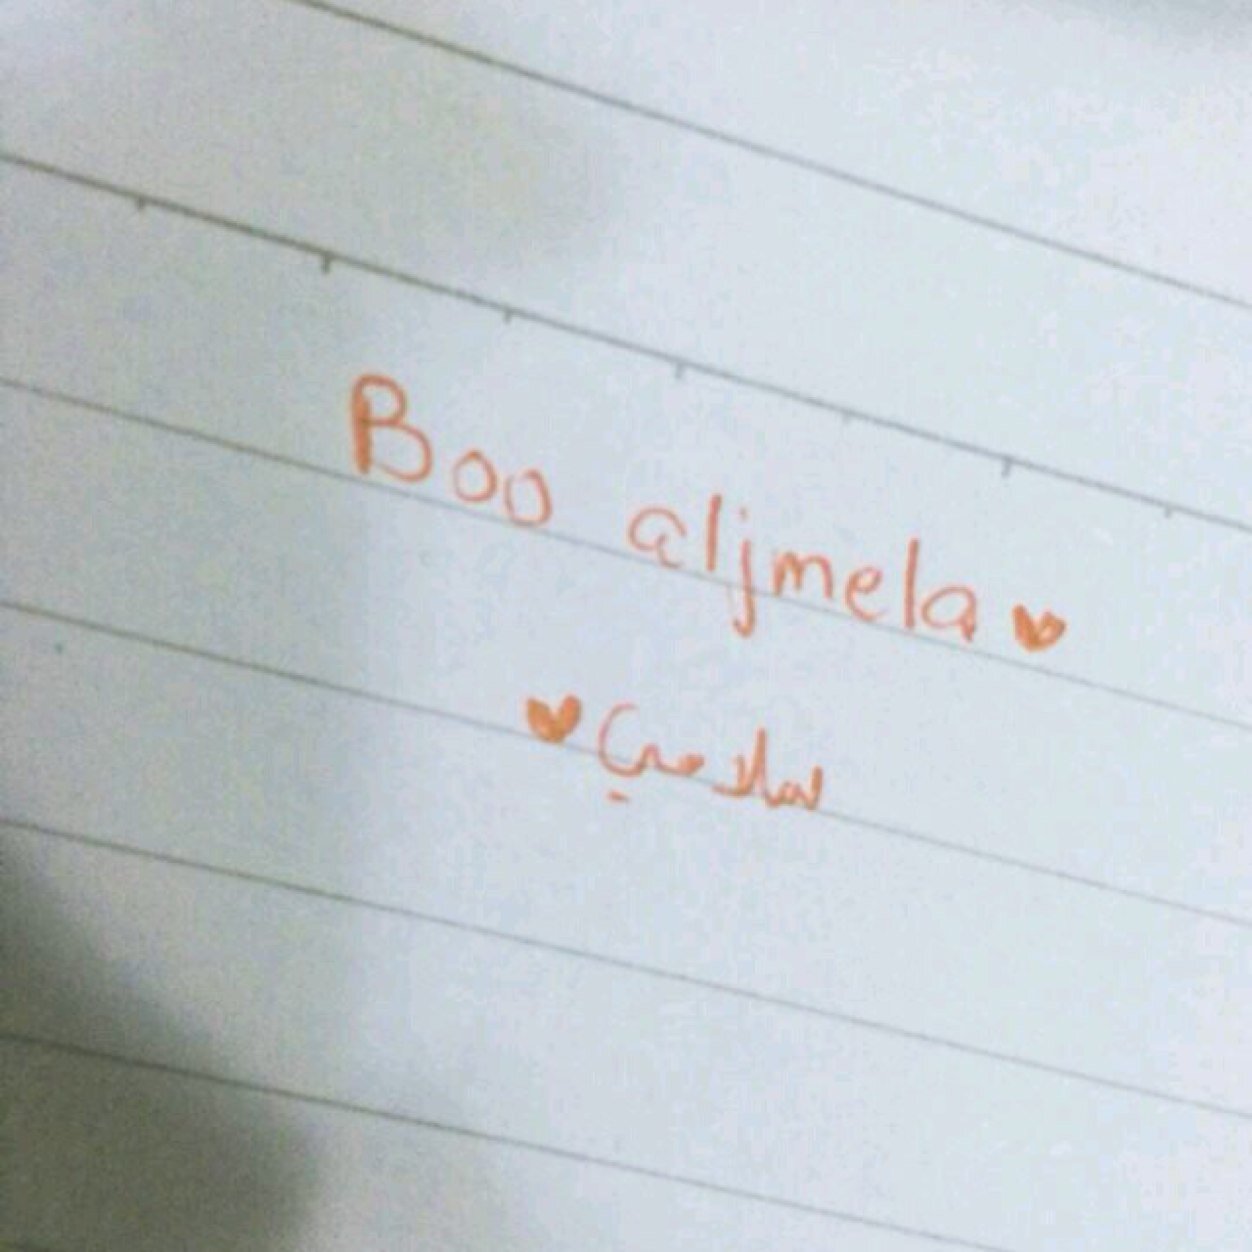 Boo aljmela ♥
سلامي ♥